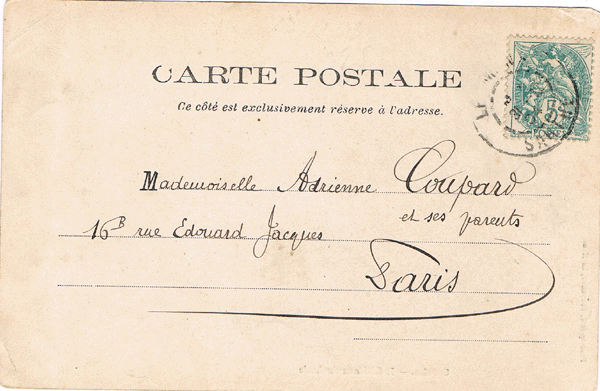 CARTE POSTALE
Ce côté est exclusivement réservé à l'adresse.
Mademoiselle Adrienne Coupard
et ses parents
16B rue Edouard Jacques
Paris